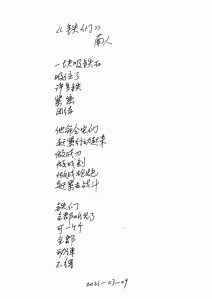 《铁们》
南人
一块吸铁石
吸住了
许多铁
紧密
团结
他命令它们
赶紧行动起来
做成刀
做成剑
做成枪炮
赶紧去战斗
铁们
全都听见了
可一个个
全都
动弹
不得
2021-03-09